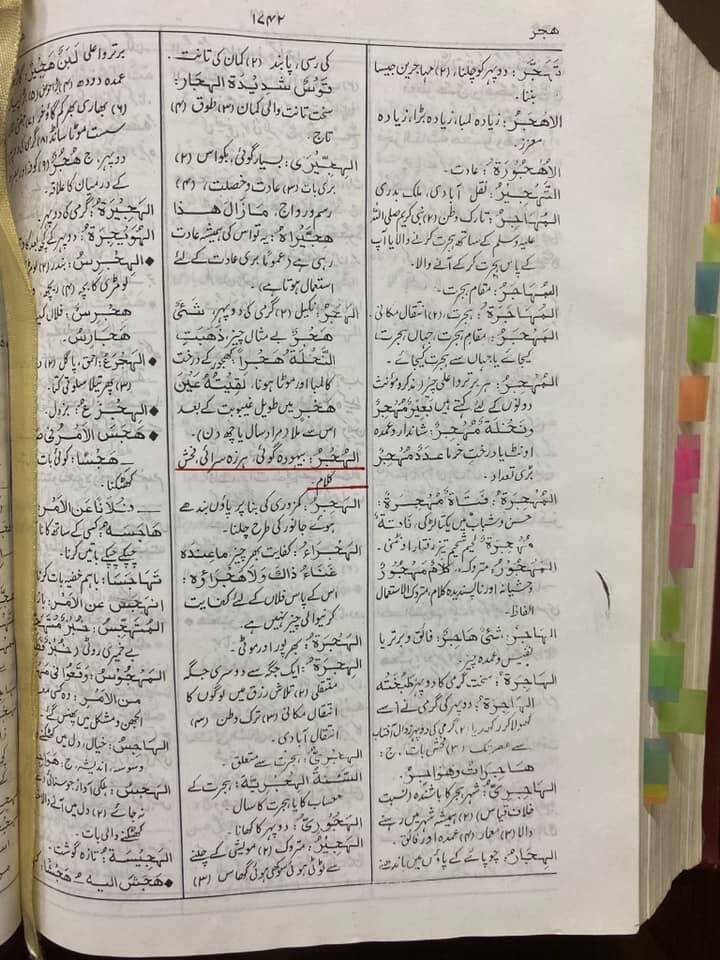 ھجر
۱۷۴۲
تَهَجَّرَ: دوپہر کو چلنا، (۲) مہاجرین جیسا
بننا۔
الاَهْجَرُ: زیادہ لمبا، زیادہ بڑا، زیادہ
معزز۔
الاُهْجُورَةُ: عادت۔
التَّهْجِيْرُ: نقل آبادی، ملک بدری
المُهَاجِرُ: تارک وطن (۲) نبی کریم صلی اللہ
علیہ وسلم کے ساتھ ہجرت کرنے والا یا آپ
کے پاس ہجرت کر کے آنے والا۔
المُهَاجَرُ: مقام ہجرت۔
المُهَاجَرَةُ: ہجرت، (۲) انتقال مکانی۔
المَهْجَرُ: مقام ہجرت، جہاں ہجرت
کیجائے یا جہاں سے ہجرت کیجائے۔
المُهْجِرُ: ہر برتر و اعلیٰ چیز (مذکر و مؤنث
دونوں کے لئے کہتے ہیں بَعِيْرٌ مُهْجِرٌ
وَنَخْلَةٌ مُهْجِرٌ: شاندار و عمدہ
اونٹ یا درخت خرما عَدَدٌ مُهْجِرٌ
بڑی تعداد۔
المُهْجِرَةُ: فَتَاةٌ مُهْجِرَةٌ:
حسن و شباب میں یکتا لڑکی۔ نَاقَةٌ
مُهْجِرَةٌ لحیم شحیم تیز رفتار اونٹنی۔
المَهْجُورُ: متروک، كَلَامٌ مَهْجُورٌ
وحشیانہ اور ناپسندیدہ کلام، متروک الاستعمال
الفاظ۔
الهَاجِرُ: شَئْيٌ هَاجِرٌ: فائق و برتر یا
نفیس و عمدہ چیز۔
الهَاجِرَةُ: سخت گرمی کا دوپہر طَبَخَتْهُ
الهَاجِرَةُ: دوپہر کی گرمی نے اسے
کھولا کر رکھدیا (۲) گرمی کی دوپہر زوال آفتاب
سے عصر تک (۳) فحش بات۔ ج:
هَاجِرَات وهَوَاجِرُ۔
الهَاجِرِيُّ: شہر ہجر کا باشندہ (نسبت
خلاف قیاس) (۲) ہمیشہ شہر میں رہنے
والا (۳) معمار (۴) عمدہ اور فائق۔
الهِجَارُ: چوپائے کے پاؤں میں باندھنے
کی رسی، پابند (۲) کمان کی تانت
قَوْسٌ شَدِيْدَةُ الهِجَارِ:
سخت تانت والی کمان (۳) طوق (۴)
تاج۔
الهِجِّيْرَى: بسیار گوئی، بکواس (۲)
بری بات (۳) عادت و خصلت، (۴)
رسم و رواج، مَازَالَ هٰذَا
هِجِّيْرَاهُ: یہ تو اس کی ہمیشہ عادت
رہی ہے (عموماً بری عادت کے لئے
استعمال ہوتا ہے)۔
الهَجْرُ: نکیل (۲) گرمی کی دوپہر، شَئْيٌ
هَجْرٌ بے مثال چیز، ذَهَبَتِ
النَّخْلَةُ هَجْرًا: کھجور کے درخت
کا لمبا اور موٹا ہونا۔ لَقِيْتُهُ عَنْ
هَجْرٍ میں طویل غیبوبت کے بعد
اس سے ملا (مراد سال یا چھ دن)۔
الهُجْرُ: بیہودہ گوئی، ہرزہ سرائی، فحش
کلام۔
الهَجِرُ: کمزوری کی بنا پر پاؤں بندھے
ہوئے جانور کی طرح چلنا۔
الهَجْرَاءُ: کفایت بھر چیز مَا عِنْدَهُ
غَنَاءُ ذٰلِكَ وَلَا هَجْرَاؤُهُ:
اس کے پاس فلاں کے لئے کفایت
کرنیوالی چیز نہیں ہے۔
الهَجِرَةُ: بھرپور اور موٹی۔
الهِجْرَةُ: ایک جگہ سے دوسری جگہ
منتقلی (۲) تلاش رزق میں لوگوں کا
انتقال مکانی (۳) ترک وطن (۴)
انتقال آبادی۔
الهِجْرِيُّ: ہجرت سے متعلق۔
السَّنَةُ الهِجْرِيَّةُ: ہجرت کے
حساب کا یا ہجرت کا سال۔
الهَجُورِيُّ: دوپہر کا کھانا۔
الهَجِيْرُ: متروک (۲) مویشی کے چلنے
سے ٹوٹی ہوئی سوکھی ہوئی گھاس (۳)
برتر و اعلیٰ لَبَنٌ هَجِيْرٌ:
عمدہ دودھ (۴)
(۶) بھاری بھر کم
سست موٹا سانڈ (۸) گرمی کی
دوپہر۔ ج هُجُرٌ
کے درمیان کا علاقہ۔
الهَجِيْرَةُ: گرمی کی دوپہر۔
الهُوَيْجِرَةُ: دوپہر کے کچھ
◆ الهِجْرِسُ: بندر (۲)
لومڑی کا بچہ (۳) ریچھ
هِجْرِسٌ: فلاں
هَجَارِسُ۔
◆ الهِجْرَعُ: احمق، پاگل (۲)
(۳) چھریرا سلوقی کتا۔
◆ الهِجْزَعُ: بزدل۔
◆ هَجَسَ الأَمْرُ فِي
هَجْسًا: کوئی بات
کھٹکنا۔
— فُلَانًا عَنِ الأَمْرِ:
هَاجَسَهُ: کسی کے ساتھ کانا
چپکے چپکے باتیں کرنا۔
تَهَاجَسَا: باہم خفیہ بات کرنا
انْهَجَسَ عَنِ الأَمْرِ: باز
المُتَهَجِّسُ: خُبْزٌ مُتَهَجِّسٌ
بے خمیری روٹی (خُبْزٌ
المَهْجُوْسُ: وَقَعُوا فِي
مِنَ الأَمْرِ: وہ کسی
الجھن و مشکل میں پھنس گئے۔
الهَاجِسُ: خیال، دل میں کھٹکنے
وسوسہ، اندیشہ، ج: هَوَاجِسُ
الهَجْسُ: ہلکی آواز جو سنائی دے
نہ جائے (۲) دل میں آنے والا
کھٹکنے والی بات۔
الهَجِيْسَةُ: تازہ گوشت۔
◆ هَجَشَ إِلَيْهِ ـُ هَجْشًا: